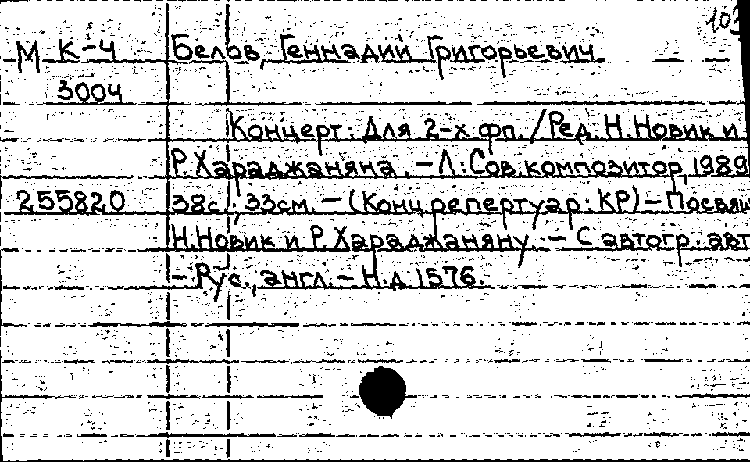 М К-4 Белов, Геннадий Григорьевич.
3004
Концерт: Для 2-х фп. / Ред. Н. Новик и
Р. Хараджаняна. – Л.: Сов. композитор, 1989
255820 38с.; 33см. – (Конц. репертуар: КР) – Посвящ
Н. Новик и Р. Хараджаняну. – С автогр. авт
– Рус., англ. – Н.д. 1576.